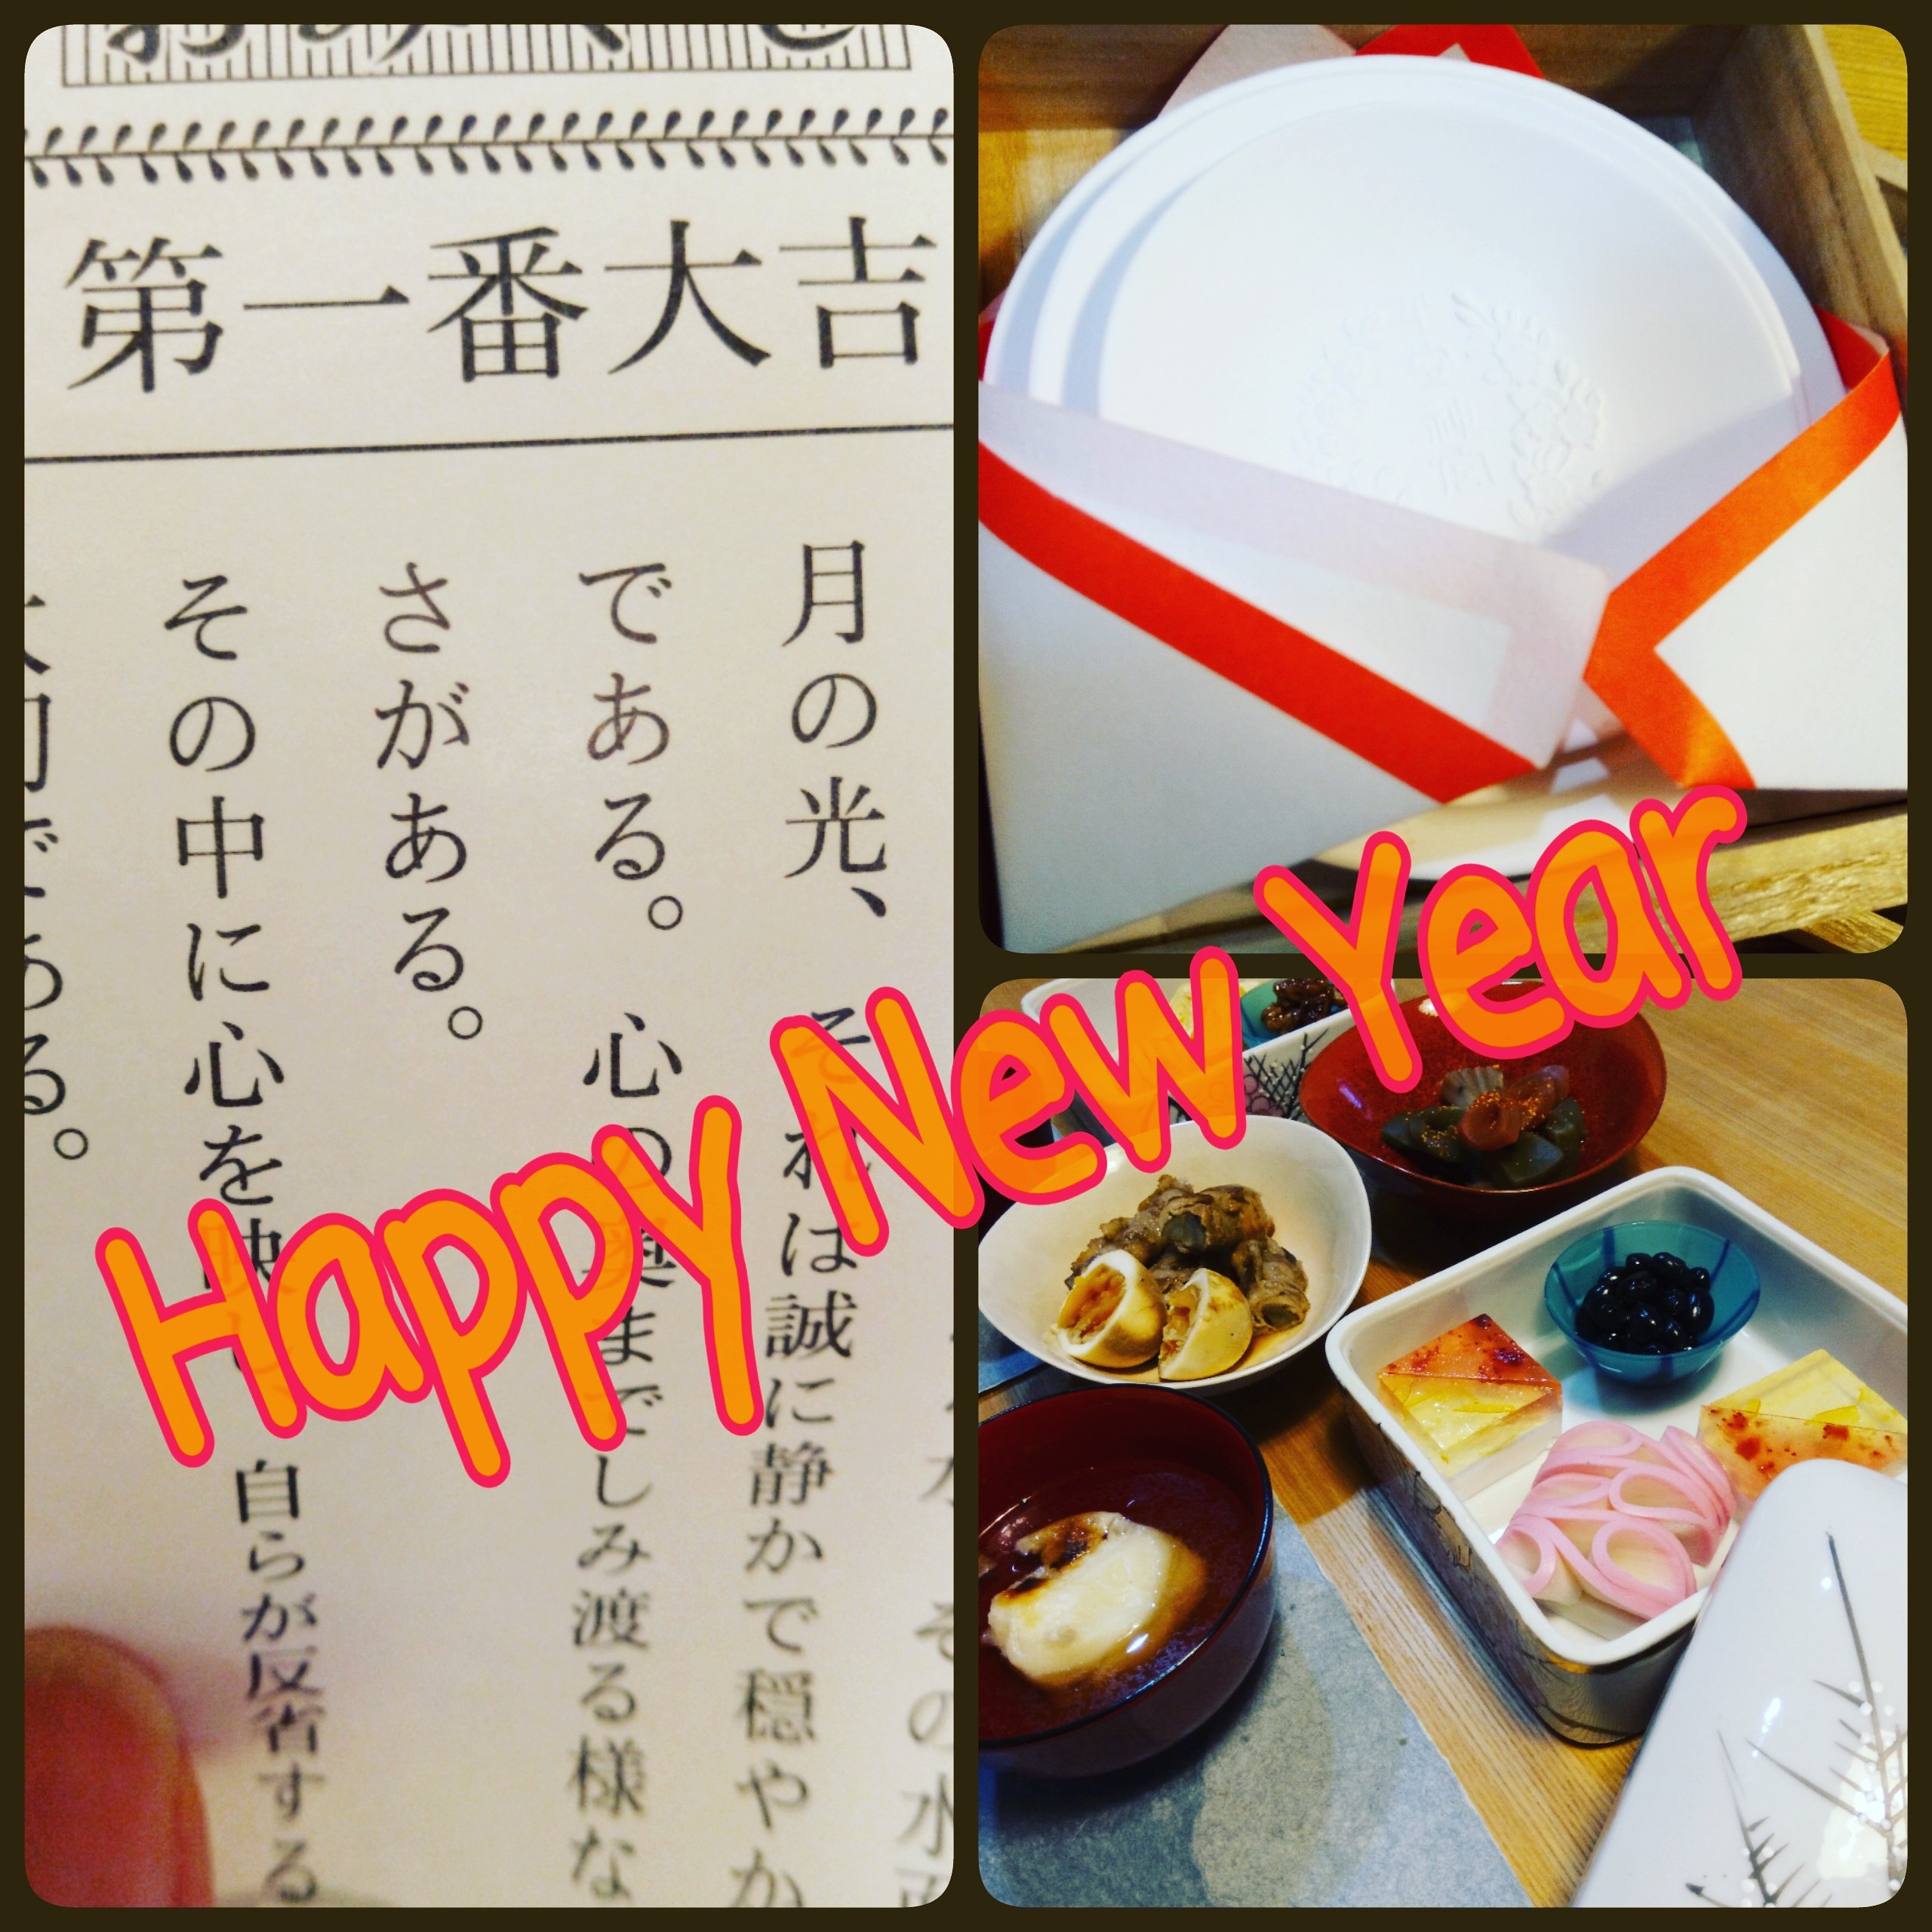 おみくじ
第一番大吉
月の光、それは誠に静かで穏やか
である。心の奥までしみ渡る様な
さがある。
その中に心を映し、自らが反省する
大切である。
Happy New Year